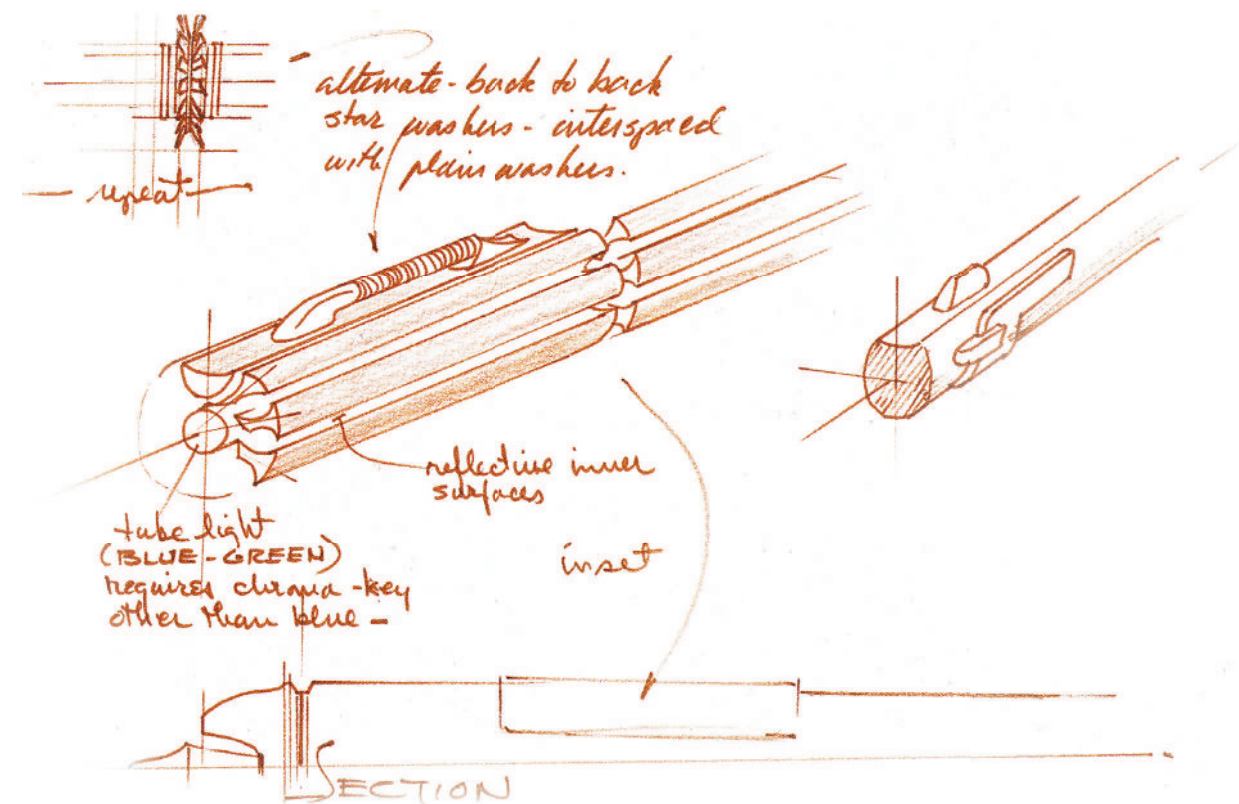 alternate - back to back
star washers - interspaced
with plain washers.
repeat
reflective inner
surfaces
tube light
(BLUE-GREEN)
requires chroma-key
other than blue -
inset
SECTION